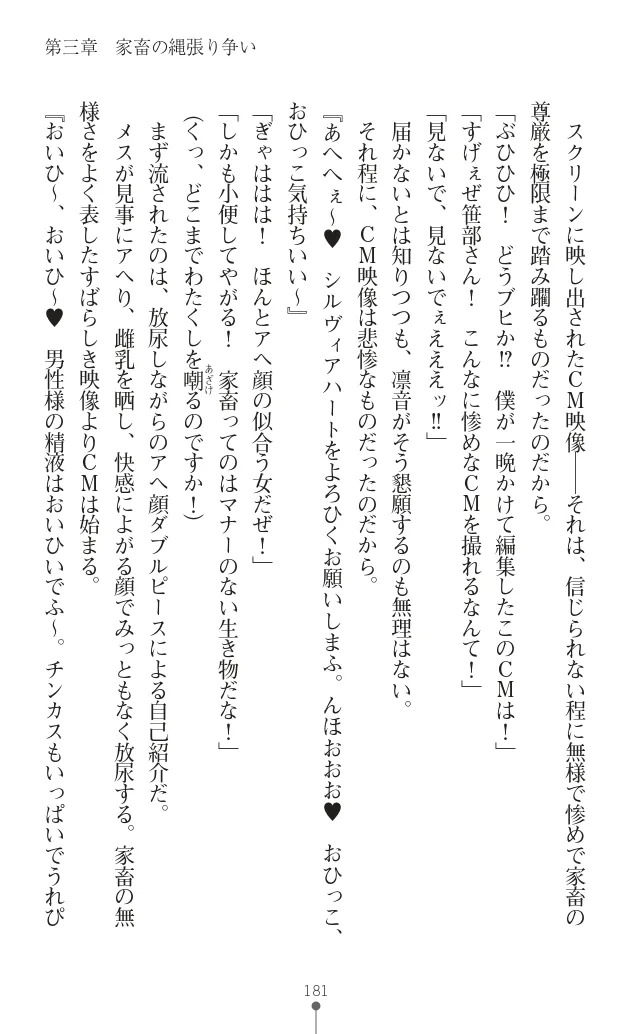 第三章　家畜の縄張り争い
　スクリーンに映し出されたＣＭ映像――それは、信じられない程に無様で惨めで家畜の
尊厳を極限まで踏み躙るものだったのだから。
「ぶひひひ！　どうブヒか!?　僕が一晩かけて編集したこのＣＭは！」
「すげぇぜ笹部さん！　こんなに惨めなＣＭを撮れるなんて！」
「見ないで、見ないでぇえええッ!!」
　届かないとは知りつつも、凛音がそう懇願するのも無理はない。
　それ程に、ＣＭ映像は悲惨なものだったのだから。
『あへへぇ～♥　シルヴィアハートをよろひくお願いしまふ。んほおおお♥　おひっこ、
おひっこ気持ちいい～』
「ぎゃははは！　ほんとアヘ顔の似合う女だぜ！」
「しかも小便してやがる！　家畜ってのはマナーのない生き物だな！」
（くっ、どこまでわたくしを嘲あざけるのですか！）
　まず流されたのは、放尿しながらのアヘ顔ダブルピースによる自己紹介だ。
　メスが見事にアヘり、雌乳を晒し、快感によがる顔でみっともなく放尿する。家畜の無
様さをよく表したすばらしき映像よりＣＭは始まる。
『おいひ～、おいひ～♥　男性様の精液はおいひいでふ～。チンカスもいっぱいでうれぴ
181